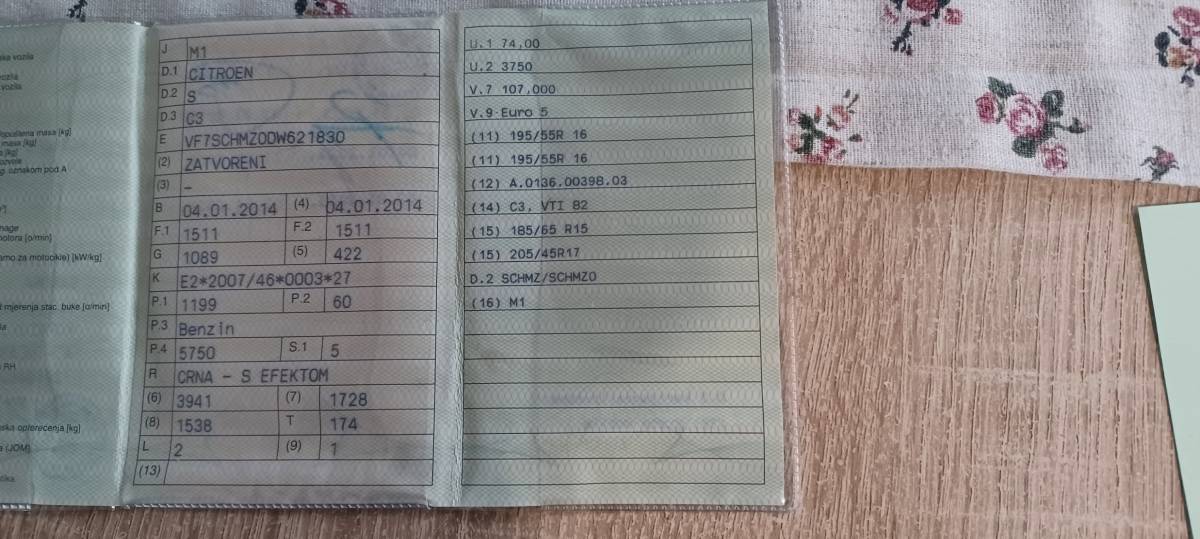 ska vozila
vozila
vozila
masa [kg]
masa [kg]
oznakom pod A
snage
motora [o/min]
samo za motocikle) [kW/kg]
mjerenja stac. buke [o/min]
RH
opterećenja [kg]
(JOM)
J M1
D.1 CITROEN
D.2 S
D.3 C3
E VF7SCHMZ0DW621830
(2) ZATVORENI
(3) –
B 04.01.2014 (4) 04.01.2014
F.1 1511 F.2 1511
G 1089 (5) 422
K E2*2007/46*0003*27
P.1 1199 P.2 60
P.3 Benzin
P.4 5750 S.1 5
R CRNA - S EFEKTOM
(6) 3941 (7) 1728
(8) 1538 T 174
L 2 (9) 1
(13)
U.1 74,00
U.2 3750
V.7 107,000
V.9 Euro 5
(11) 195/55R 16
(11) 195/55R 16
(12) A.0136.00398.03
(14) C3, VTI 82
(15) 185/65 R15
(15) 205/45R17
D.2 SCHMZ/SCHMZ0
(16) M1